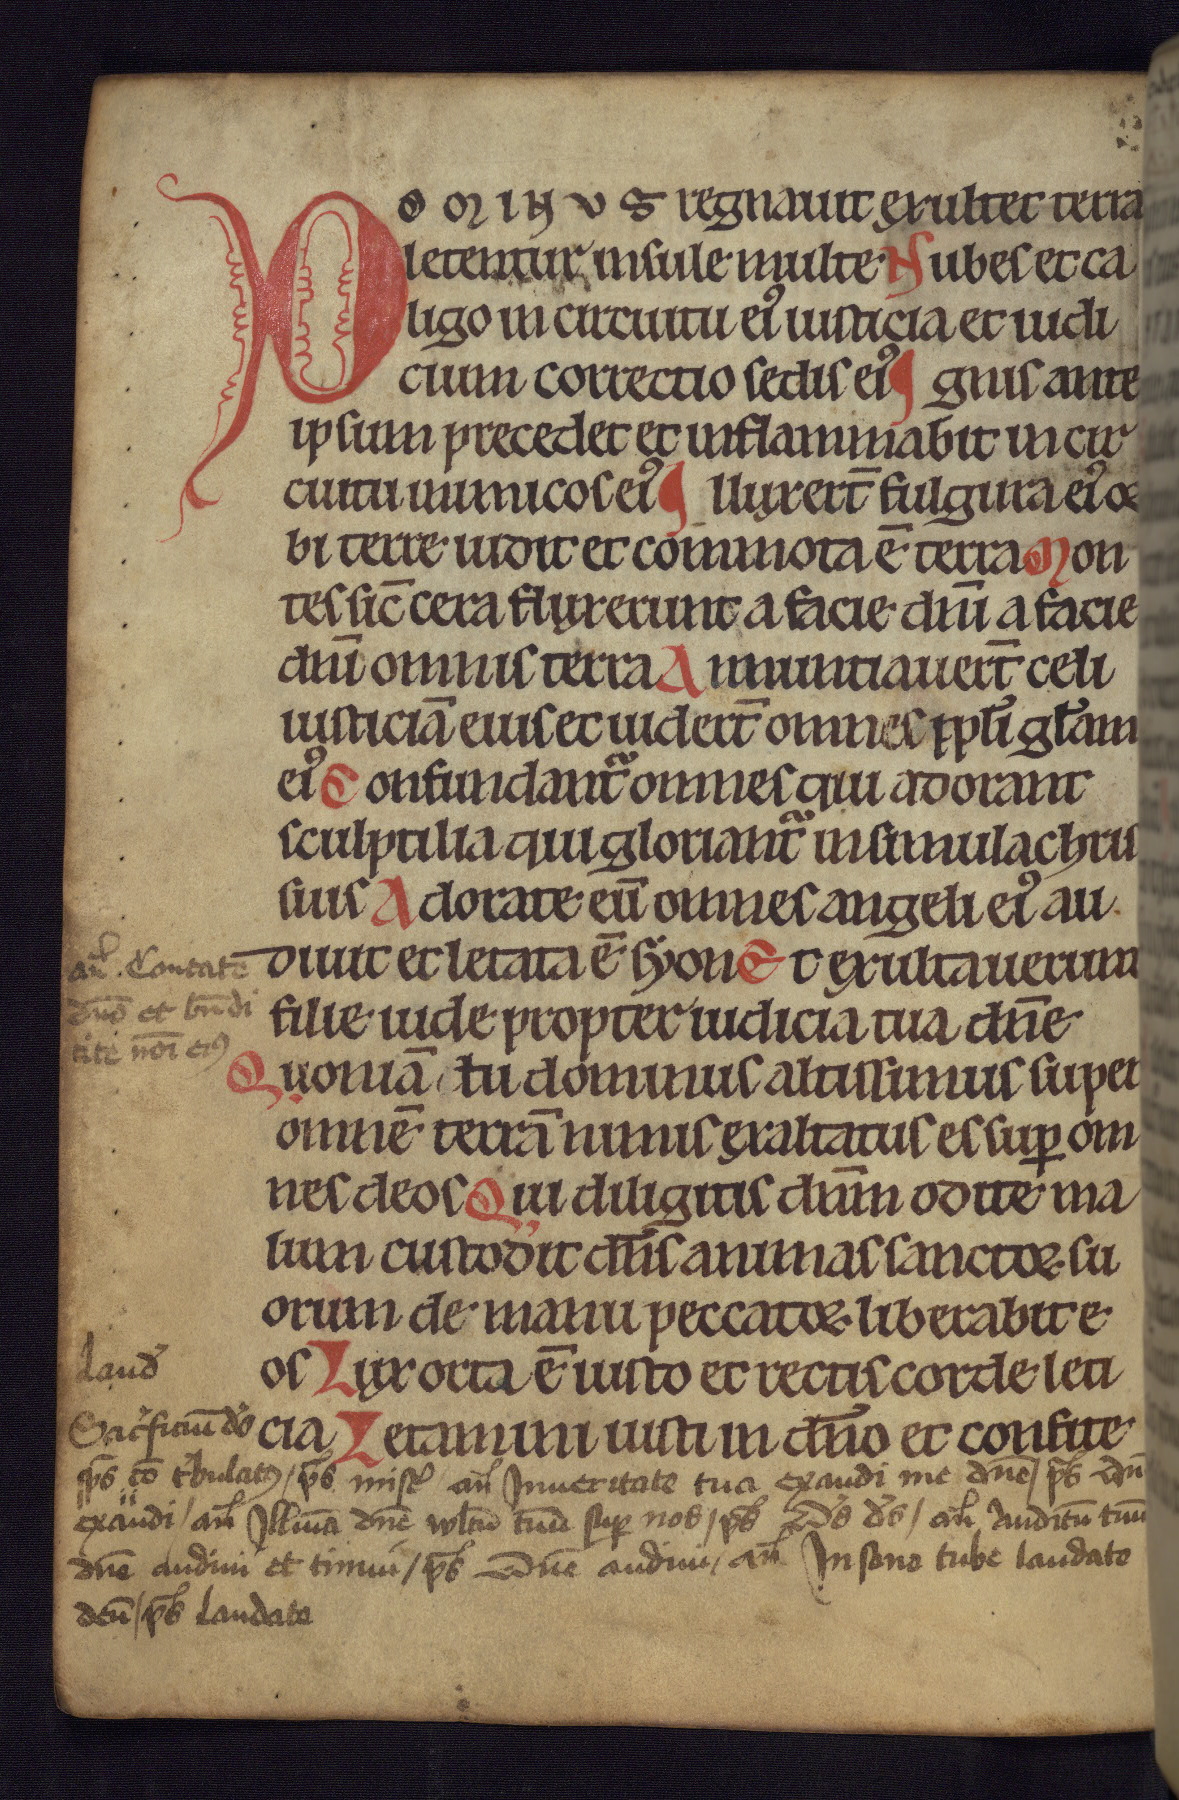 DOMINUS regnauit exultet terra
letentur insule multe Nubes et ca
ligo in circuitu ei⁹ iusticia et iudi
cium correctio sedis ei⁹ Ignis ante
ipsum precedet et inflammabit in cir
cuitu inimicos ei⁹ Illuxert̄ fulgura ei⁹ oꝛ
bi terre uidit et commota ē terra Mon
tes sic̄ cera fluxerunt a facie dnī a facie
dnī omnis terra Annuntiauert̄ celi
iusticiā eius et uidert̄ omnes ppl̄i gl̄am
ei⁹ Confundant᷑ omnes qui adorant
sculptilia qui gloriant᷑ in simulachris
suis Adorate eū omnes angeli ei⁹ au
diuit et letata ē syon Et exultauerunt
filie iude propter iudicia tua dn̄e
Quoniā tu dominus altissimus super
omnē terrā nimis exaltatus es suꝑ om
nes deos Qui diligitis dn̄m odite ma
lum custodit dn̄s animas sanctoꝝ su
orum de manu peccatoꝝ liberabit e
os Lux orta ē iusto et rectis corde leti
cia Letamini iusti in dn̄o et confite
an̄ Cantate
dn̄o et bn̄di
cite noī ei⁹
Laud̄
Sac͛ficiū dō
sp̄s cō t͛bulat⁹ / ps̄ misē an̄ In ueritate tua exaudi me dn̄e / ps̄ dn̄e
exaudi / an̄ Illūīa dn̄e vl̄tū tuū suꝑ nos / ps̄ ds̄ ds̄ / an̄ Auditū tuū
dn̄e audiui et timui / ps̄ Dn̄e audiui / an̄ In sono tube laudate
deū / ps̄ laudate